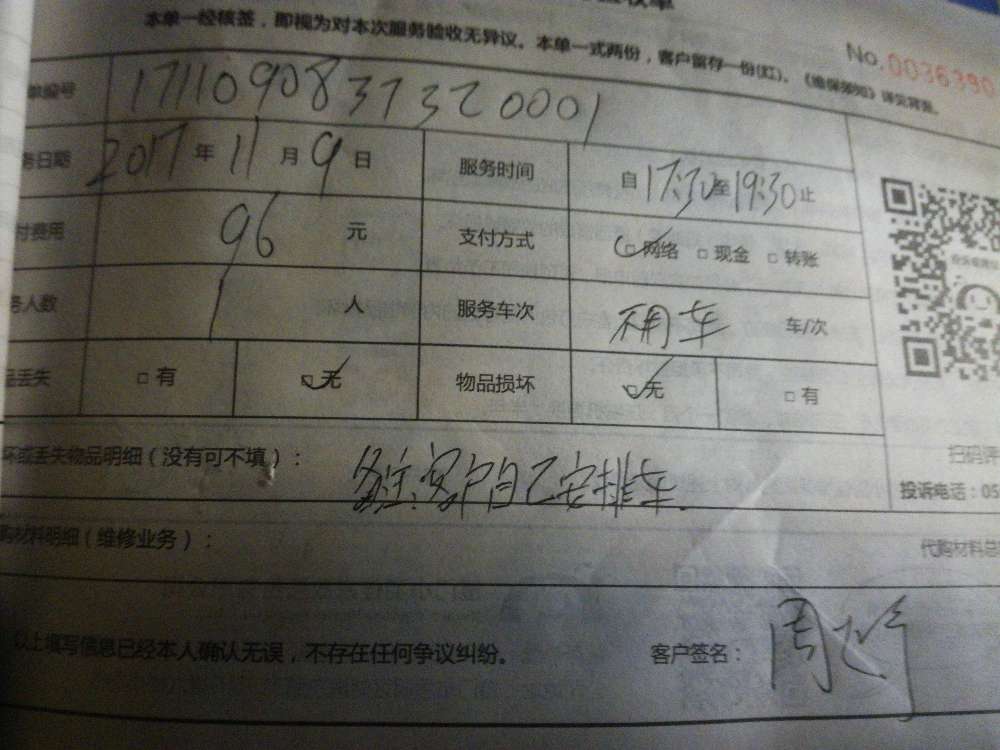 本单一经核签，即视为对本次服务验收无异议。本单一式两份，客户留存一份(红)。《维保须知》详见背面。
No.0036390
单编号 1711090837320001
务日期 2017年11月9日 服务时间 自17:30至19:30止
付费用 96 元 支付方式 网络 现金 转账
务人数 1 人 服务车次 不用车 车/次
品丢失 有 无 物品损坏 无 有
坏或丢失物品明细（没有可不填）： 备注:客户自己安排车.
扫码评
投诉电话：05
购材料明细（维修业务）： 代购材料总
以上填写信息已经本人确认无误，不存在任何争议纠纷。 客户签名：周